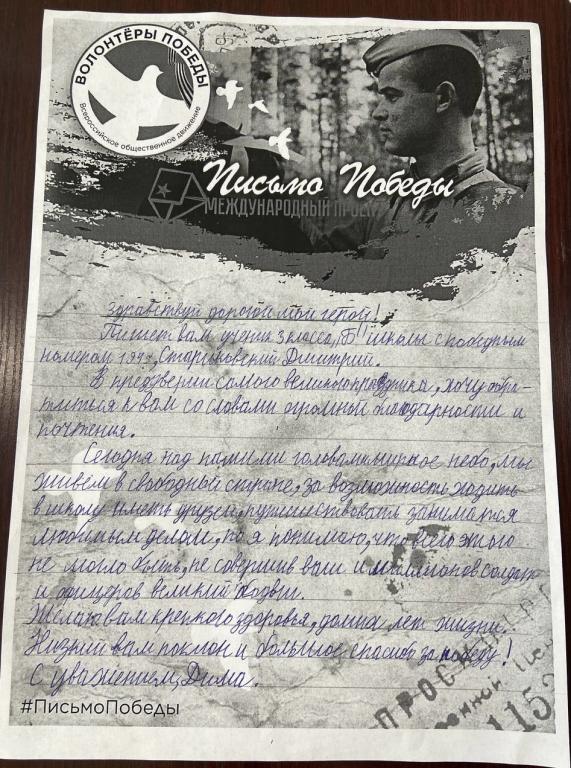 ВОЛОНТЁРЫ ПОБЕДЫ
Всероссийское общественное движение
Письмо Победы
МЕЖДУНАРОДНЫЙ ПРОЕКТ
Здравствуй дорогой мой герой!
Пишет вам ученик 3 класса "Б" школы с победным
номером 1945, Дмитрий.
В преддверии самого великого праздника, хочу обра-
титься к вам со словами огромной благодарности и
почтения.
Сегодня над нашими головами мирное небо, мы
живём в свободной стране, за возможность ходить
в школу иметь друзей, путешествовать заниматся
любимым делам, но я понимаю, что всего этого
не могло быть, не совершив вы и миллионов солдат
и офицеров великий подвиг.
Желаю вам крепкого здоровья, долгих лет жизни.
Низкий вам поклон и большое спасибо за победу!
С уважением, Дима.
#ПисьмоПобеды
1152